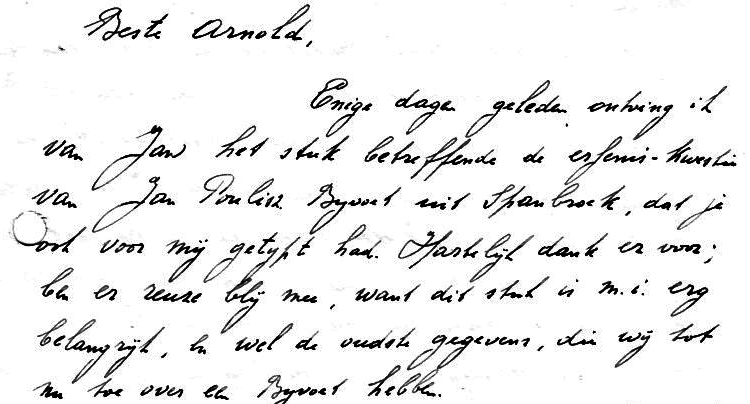 Beste Arnold,
Enige dagen geleden ontving ik
van Jan het stuk betreffende de erfenis-kwestie
van Jan Poulisz Byvoet uit Spanbroek, dat je
ook voor mij getypt had. Hartelijk dank er voor;
ben er reuze blij mee, want dit stuk is m.i. erg
belangrijk, en wel de oudste gegevens, die wij tot
nu toe over een Byvoet hebben.